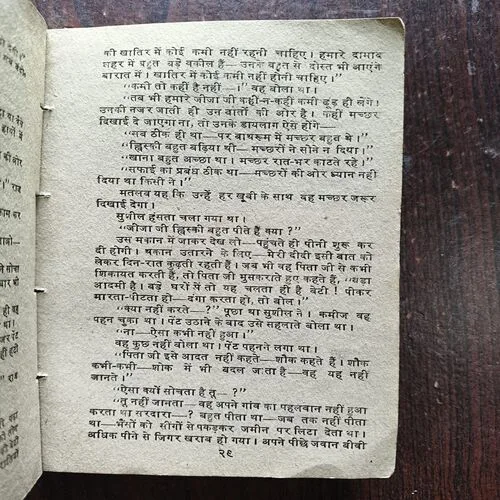 की खातिर में कोई कमी नहीं रहनी चाहिए। हमारे दामाद
शहर में बहुत बड़े वकील हैं—उनके बहुत से दोस्त भी आएंगे
बारात में। खातिर में कोई कमी नहीं होनी चाहिए।''
''कमी तो कहीं है नहीं—!'' वह बोला था।
''तब भी हमारे जीजा जी कहीं-न-कहीं कमी ढूंढ़ ही लेंगे।
उनकी नजर जाती ही उन बातों की ओर है। कहीं मच्छर
दिखाई दे जाएगा ना, तो उनके डायलाग ऐसे होंगे—
''सब ठीक ही था—पर बाथरूम में मच्छर बहुत थे।''
''ह्विस्की बहुत बढ़िया थी—मच्छरों ने सोने न दिया।''
''खाना बहुत अच्छा था। मच्छर रात-भर काटते रहे।''
''सफाई का प्रबंध ठीक था—मच्छरों की ओर ध्यान नहीं
दिया था किसी ने।''
मतलब यह कि उन्हें हर खूबी के साथ वह मच्छर जरूर
दिखाई देगा।
सुशील हंसता चला गया था।
''जीजा जी ह्विस्की बहुत पीते हैं क्या ?''
उस मकान में जाकर देख लो—पहुंचते ही पीनी शुरू कर
दी होगी। थकान उतारने के लिए—मेरी दीदी इसी बात को
लेकर दिन-रात कुढ़ती रहती हैं। जब भी वह पिता जी से कभी
शिकायत करती हैं, तो पिता जी मुसकराते हुए कहते हैं, ''बड़ा
आदमी है। बड़े घरों में तो यह चलता ही है बेटी ! पीकर
मारता-पीटता हो—दंगा करता हो, तो बोल।''
''क्या नहीं करते—?'' पूछा था सुशील ने। कमीज वह
पहन चुका था। पेंट उठाने के बाद उसे सहलाते बोला था।
''ना—ऐसा कभी नहीं हुआ।''
वह कुछ नहीं बोला था। पेंट पहनने लगा था।
''पिता जी इसे आदत नहीं कहते—शौक कहते हैं। शौक
कभी-कभी—शोक में भी बदल जाता है—वह यह नहीं
जानते।''
''ऐसा क्यों सोचता है तू—?''
''तू नहीं जानता—वह अपने गांव का पहलवान नहीं हुआ
करता था सरदारा—? बहुत पीता था—जब तक नहीं पीता
था—भैंसों को सींगों से पकड़कर जमीन पर लिटा देता था।
अधिक पीने से जिगर खराब हो गया। अपने पीछे जवान बीवी
२९